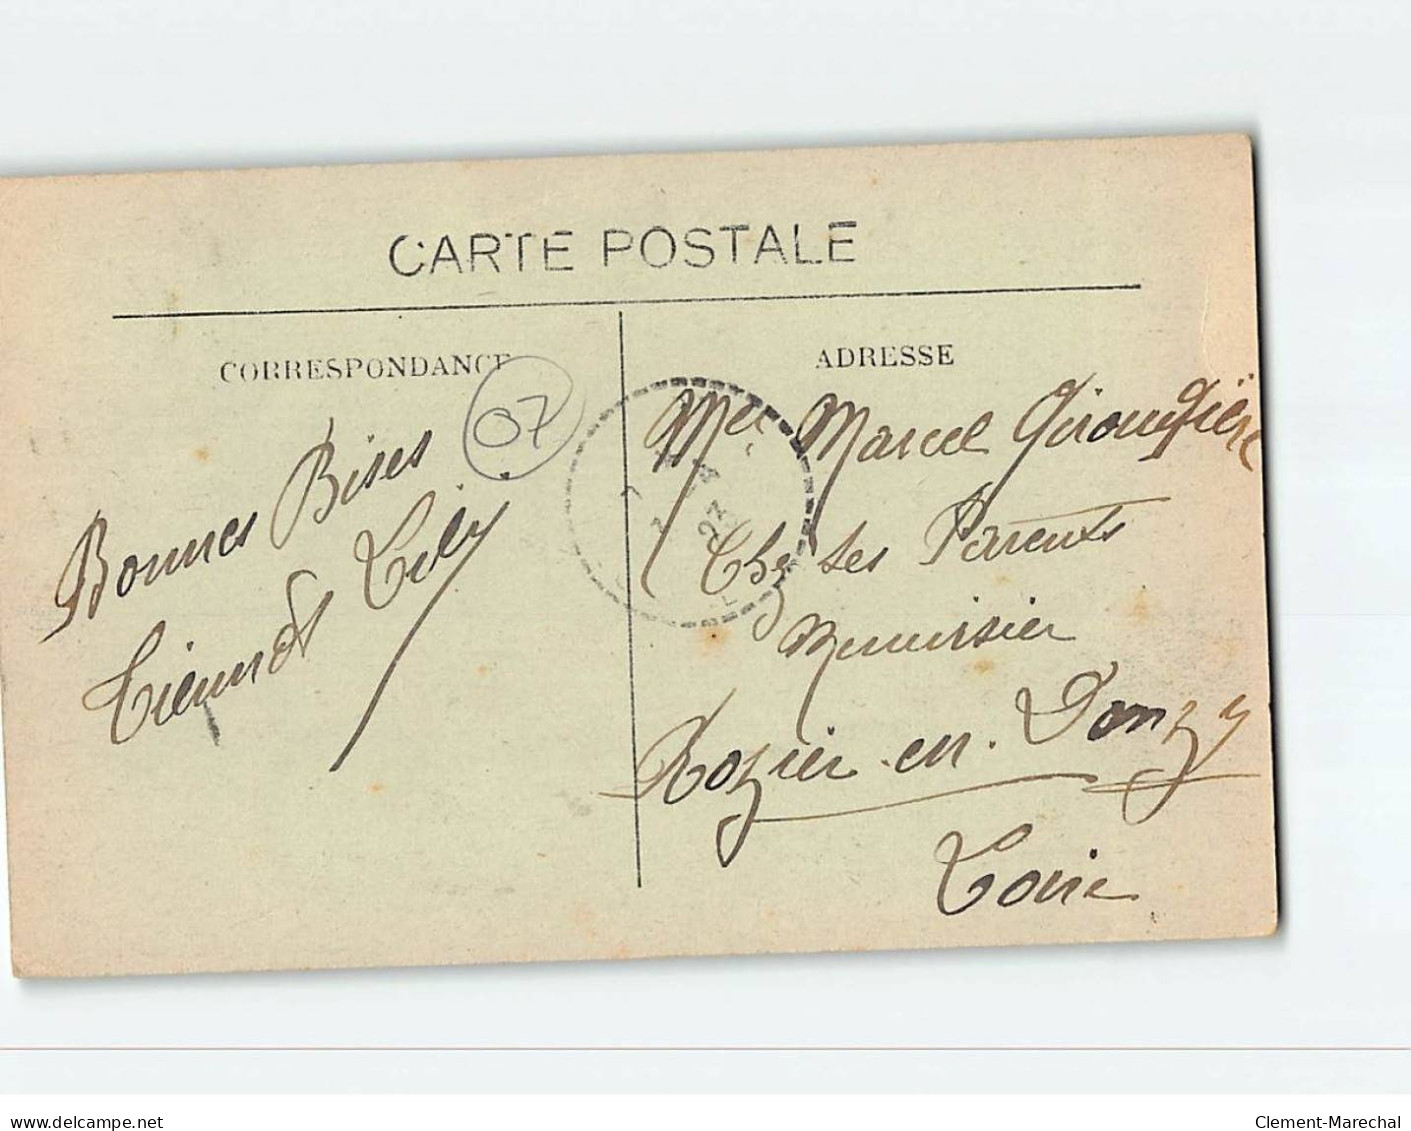 CARTE POSTALE
CORRESPONDANCE
07
Bonnes Bises
Lily
ADRESSE
Marcel
Chez ses Parents
Menuisier
Rozier-en-Donzy
Loire
4
23
www.delcampe.net
Clement-Marechal